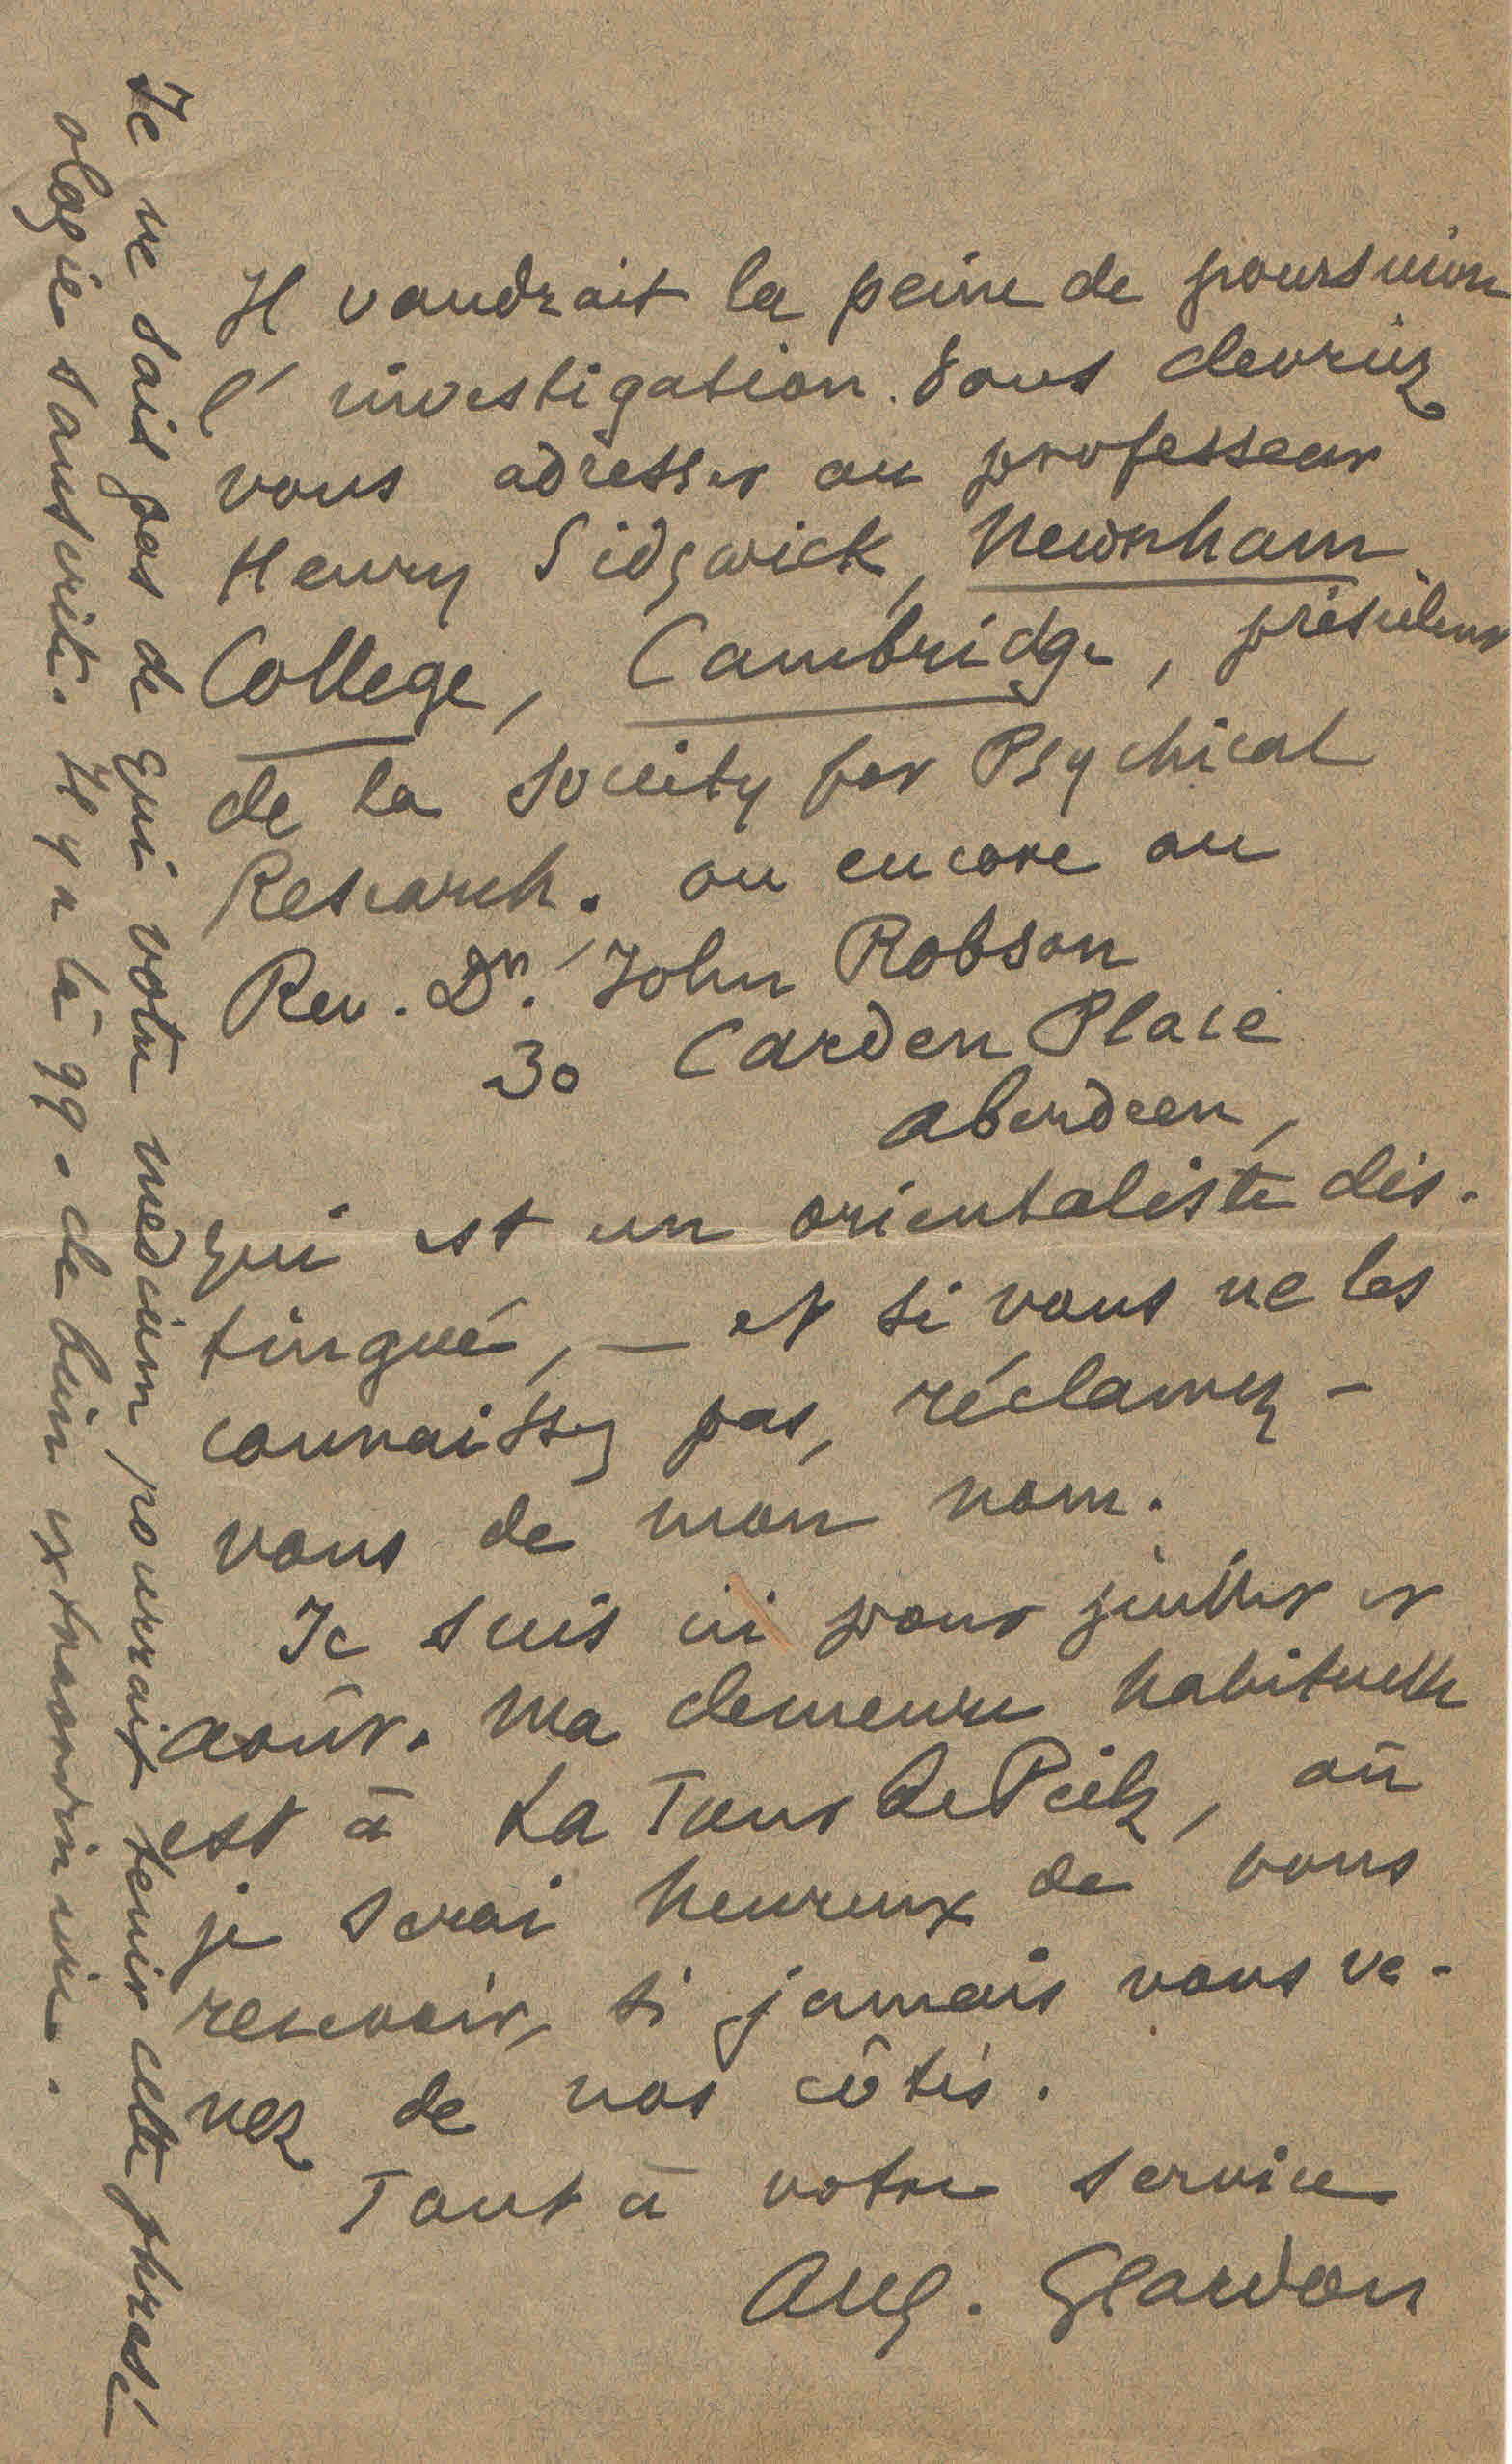 Il vaudrait la peine de poursuivre
l'investigation. Vous devriez
vous adresser au professeur
Henry Sidgwick, Newnham
College, Cambridge, président
de la Society for Psychical
Research. ou encore au
Rev. Dr. John Robson
30 Carden Place
Aberdeen,
qui est un orientaliste dis-
tingué, — et si vous ne les
connaissez pas, réclamez-
vous de mon nom.
Je suis ici pour juillet et
août. Ma demeure habituelle
est à La Tour de Peilz, où
je serai heureux de vous
recevoir, si jamais vous ve-
nez de nos côtés.
Tout à votre service
Aug. Glardon
Je ne sais pas de qui votre médium pourrait tenir cette phrasé
ologie sanscrite. Il y a là qq. de bien extraordinaire.